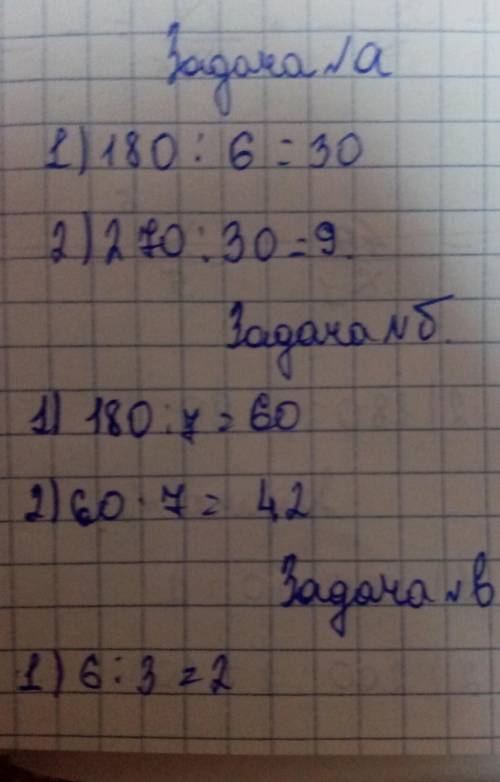 Задача №а
1) 180 : 6 = 30
2) 270 : 30 = 9.
Задача №б.
1) 180 : 7 = 60
2) 60 · 7 = 42
Задача №в
1) 6 : 3 = 2